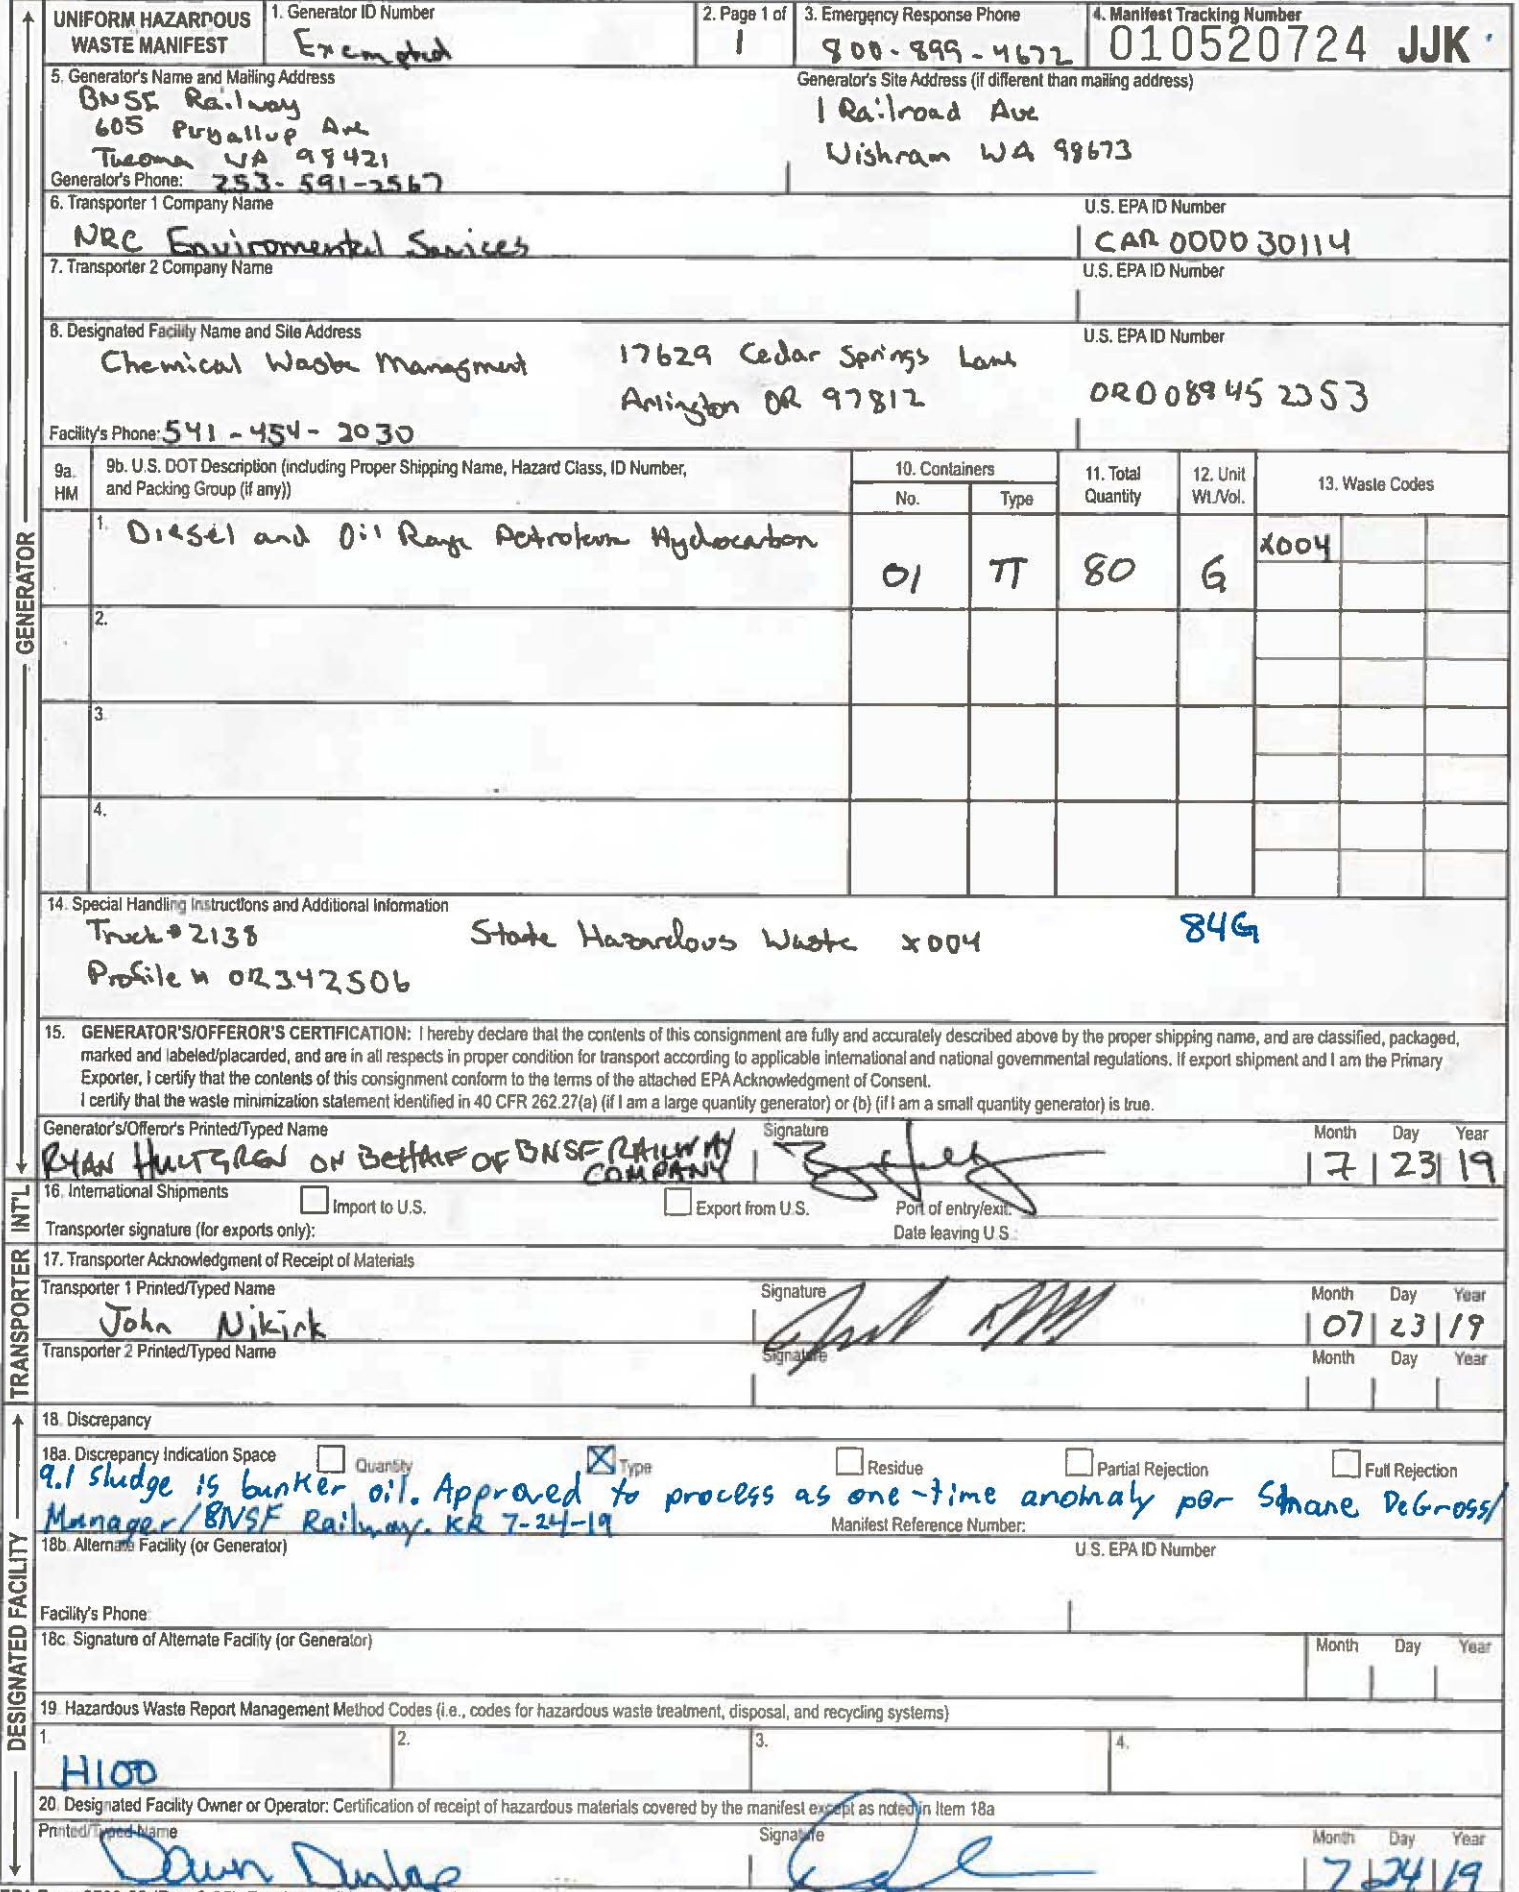 UNIFORM HAZARDOUS WASTE MANIFEST
1. Generator ID Number
Exempted
2. Page 1 of
1
3. Emergency Response Phone
800-899-4672
4. Manifest Tracking Number
010520724 JJK
5. Generator's Name and Mailing Address
BNSF Railway
605 Puyallup Ave
Tacoma WA 98421
Generator's Phone: 253-591-2567
Generator's Site Address (if different than mailing address)
1 Railroad Ave
Wishram WA 98673
6. Transporter 1 Company Name
NRC Enviromental Services
U.S. EPA ID Number
CAR 0000 30114
7. Transporter 2 Company Name
U.S. EPA ID Number
8. Designated Facility Name and Site Address
Chemical Waste Managment
17629 Cedar Springs Lane
Arlington OR 97812
U.S. EPA ID Number
ORD 089 45 2353
Facility's Phone: 541-454-2030
9a. HM
9b. U.S. DOT Description (including Proper Shipping Name, Hazard Class, ID Number,
and Packing Group (if any))
10. Containers
No.
Type
11. Total Quantity
12. Unit Wt./Vol.
13. Waste Codes
1. Diesel and Oil Range Petroleum Hydrocarbon
01
TT
80
G
X004
2.
3.
4.
14. Special Handling Instructions and Additional Information
Truck # 2138
State Hazardous Waste X004
84G
Profile # OR342506
15. GENERATOR'S/OFFEROR'S CERTIFICATION: I hereby declare that the contents of this consignment are fully and accurately described above by the proper shipping name, and are classified, packaged,
marked and labeled/placarded, and are in all respects in proper condition for transport according to applicable international and national governmental regulations. If export shipment and I am the Primary
Exporter, I certify that the contents of this consignment conform to the terms of the attached EPA Acknowledgment of Consent.
I certify that the waste minimization statement identified in 40 CFR 262.27(a) (if I am a large quantity generator) or (b) (if I am a small quantity generator) is true.
Generator's/Offeror's Printed/Typed Name
Signature
Month Day Year
RYAN HULTGREN ON BEHALF OF BNSF RAILWAY
COMPANY
7 23 19
16. International Shipments
Import to U.S.
Export from U.S.
Port of entry/exit:
Transporter signature (for exports only):
Date leaving U.S.:
17. Transporter Acknowledgment of Receipt of Materials
Transporter 1 Printed/Typed Name
Signature
Month Day Year
John Nikirk
07 23 19
Transporter 2 Printed/Typed Name
Signature
Month Day Year
18. Discrepancy
18a. Discrepancy Indication Space
Quantity
Type
Residue
Partial Rejection
Full Rejection
9.1 Sludge is bunker oil. Approved to process as one-time anomaly per Shane DeGross/
Manager/BNSF Railway. KR 7-24-19
Manifest Reference Number:
18b. Alternate Facility (or Generator)
U.S. EPA ID Number
Facility's Phone:
18c. Signature of Alternate Facility (or Generator)
Month Day Year
19. Hazardous Waste Report Management Method Codes (i.e., codes for hazardous waste treatment, disposal, and recycling systems)
1.
2.
3.
4.
H100
20. Designated Facility Owner or Operator: Certification of receipt of hazardous materials covered by the manifest except as noted in Item 18a
Printed/Typed Name
Signature
Month Day Year
Dawn Dunlap
7 24 19
GENERATOR
INT'L
TRANSPORTER
DESIGNATED FACILITY